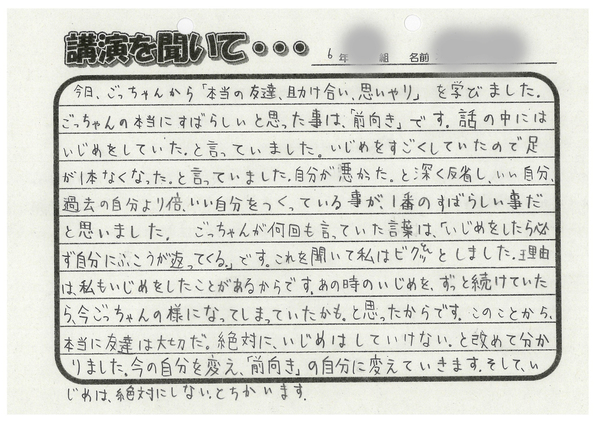 講演を聞いて・・・
6年 組 名前
今日、ごっちゃんから「本当の友達、助け合い、思いやり」を学びました。
ごっちゃんの本当にすばらしいと思った事は、「前向き」です。話の中には
いじめをしていた。と言っていました。いじめをすごくしていたので足
が1本なくなった。と言っていました。自分が悪かった。と深く反省し、いい自分、
過去の自分より倍、いい自分をつくっている事が、1番のすばらしい事だ
と思いました。 ごっちゃんが何回も言っていた言葉は、「いじめをしたら必
ず自分にふこうが遊ってくる。」です。これを聞いて私はビクッとしました。理由
は、私もいじめをしたことがあるからです。あの時のいじめを、ずっと続けていた
ら、今ごっちゃんの様になってしまっていたかも。と思ったからです。このことから、
本当に友達は大切だ。絶対に、いじめはしていけない。と改めて分か
りました。今の自分を変え、「前向き」の自分に変えていきます。そして、い
じめは、絶対にしない。とちかいます。